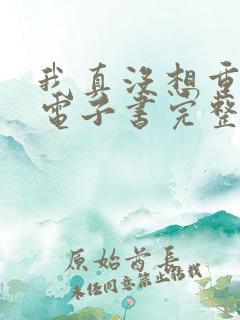 我真没想重
電子書完整
原始首长
未经同意禁止转载